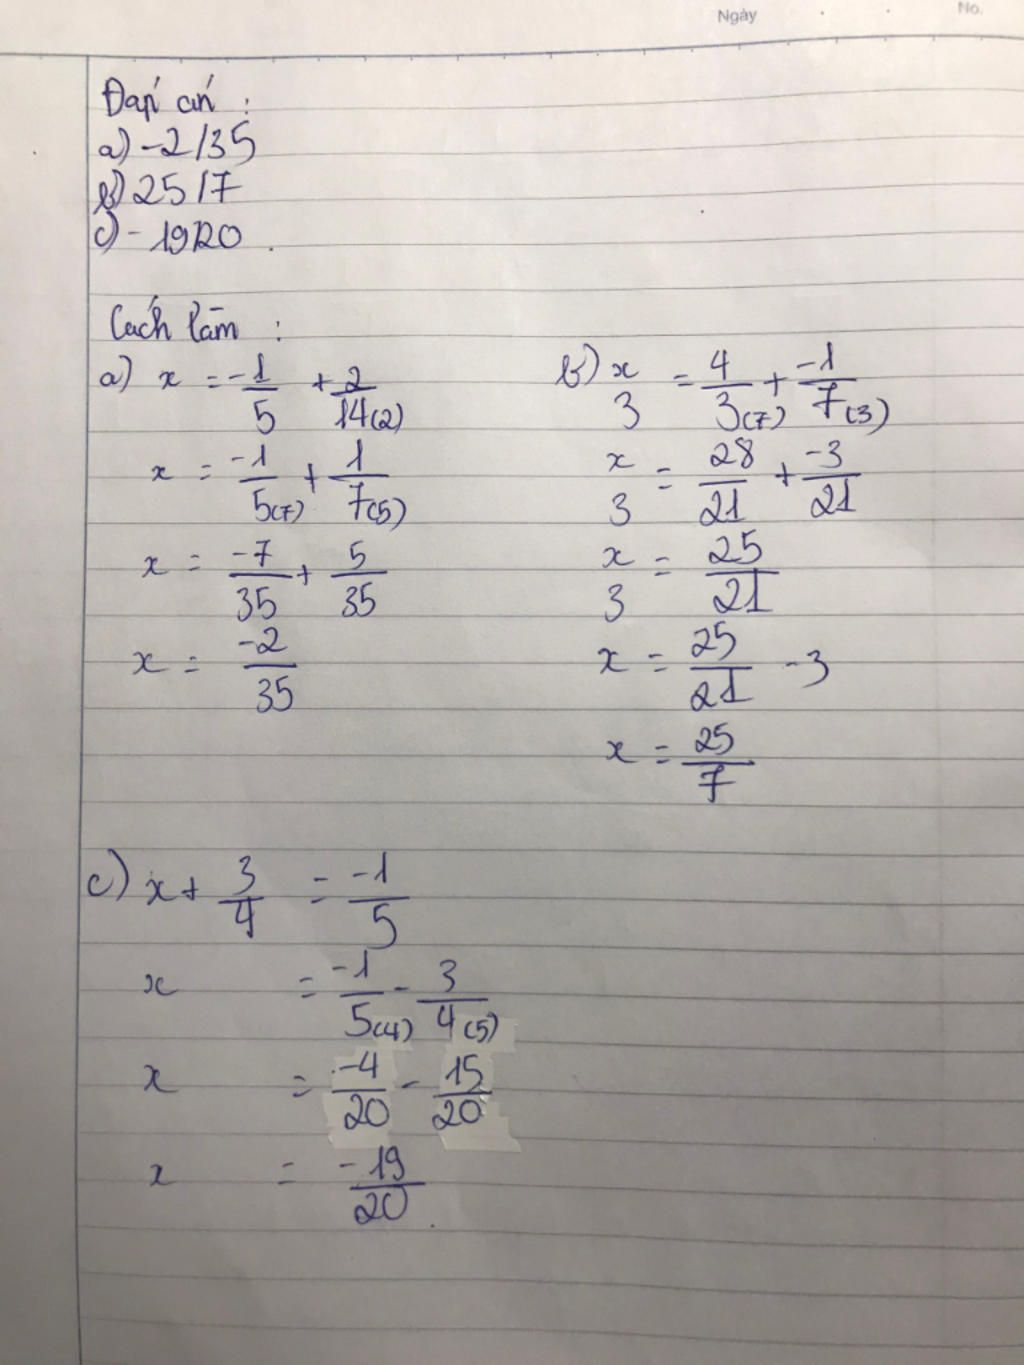 Ngày
No.
Đáp án :
a) -2/35
b) 25/7
c) - 19/20
Cách làm :
a) x = -1/5 + 2/14(2)
x = -1/5(7) + 1/7(5)
x = -7/35 + 5/35
x = -2/35
b) x/3 = 4/3(7) + -1/7(3)
x/3 = 28/21 + -3/21
x/3 = 25/21
x = 25/21 - 3
x = 25/7
c) x + 3/4 = -1/5
x = -1/5(4) - 3/4(5)
x = -4/20 - 15/20
x = -19/20